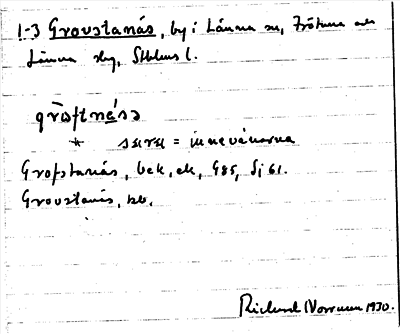 1-3 Grovstanäs, by i Länna sn, Frötuna och
Länna slg, Sthlms l.
gròftnésə
= innevånarna
Grofstanäs, bek, ek, G85, Sj 61.
Grovstanäs, kb.
Rickard Norrman 1930.